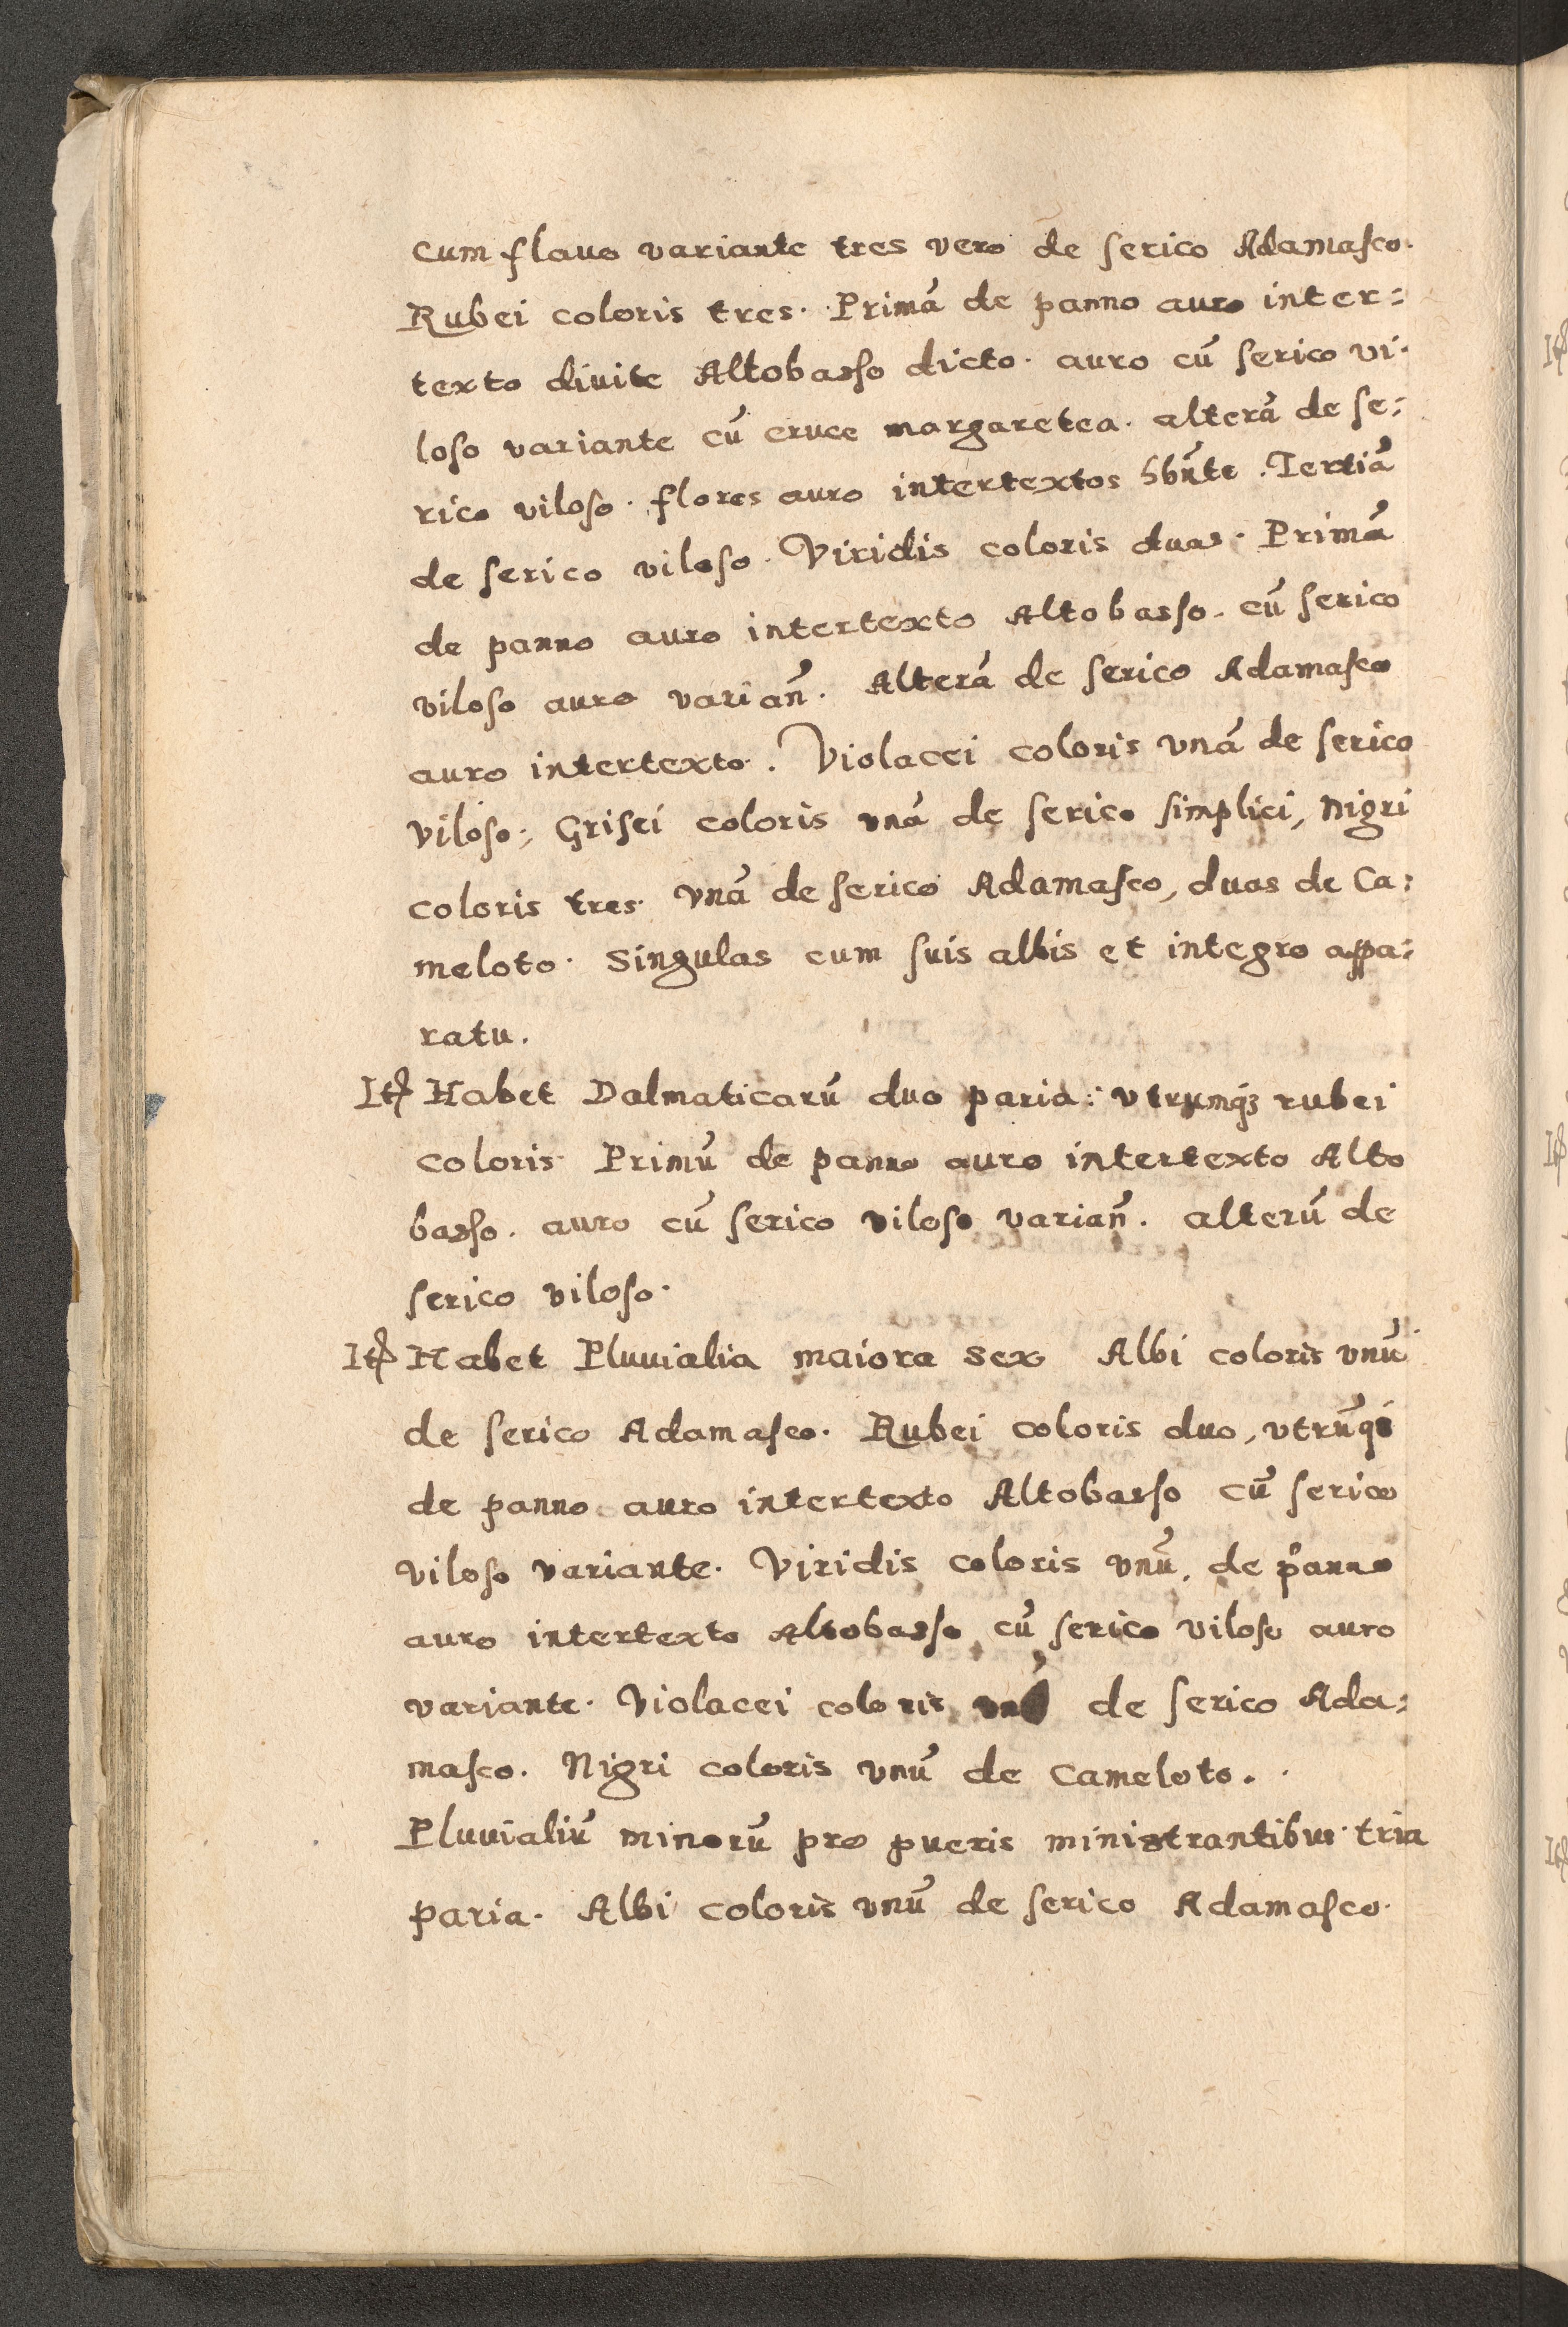 cum flauo variante tres vero de serico Adamasco.
Rubei coloris tres. Primā de panno auro inter:
texto diuite Altobasso dicto. auro cū serico vi.
loso variante cū cruce margaretea. alterā de se:
rico viloso. flores auro intertextos hn̄te. Tertiā
de serico viloso. Viridis coloris duas. Primā
de panno auro intertexto Altobasso. cū serico
viloso auro varian̄. Alterā de serico Adamasco
auro intertexto. Violacei coloris vnā de serico
viloso; Grisei coloris vnā de serico simplici, nigri
coloris tres. vnā de serico Adamasco, duas de Ca:
meloto. Singulas cum suis albis et integro appa:
ratu.
Itꝫ Habet Dalmaticarū duo paria: vtrumqꝫ rubei
coloris. Primū de panno auro intertexto Alto
basso. auro cū serico viloso varian̄. alterū de
serico viloso.
Itꝫ Habet Pluuialia maiora sex Albi coloris vnū
de serico Adamasco. Rubei coloris duo, vtrūqꝫ
de panno auro intertexto Altobasso cū serico
viloso variante. Viridis coloris vnū, de panno
auro intertexto Altobasso cū serico viloso auro
variante. Violacei coloris vnū de serico Ada:
masco. Nigri coloris vnū de Cameloto.
Pluuialiū minorū pro pueris ministrantibus tria
paria. Albi coloris vnū de serico Adamasco.